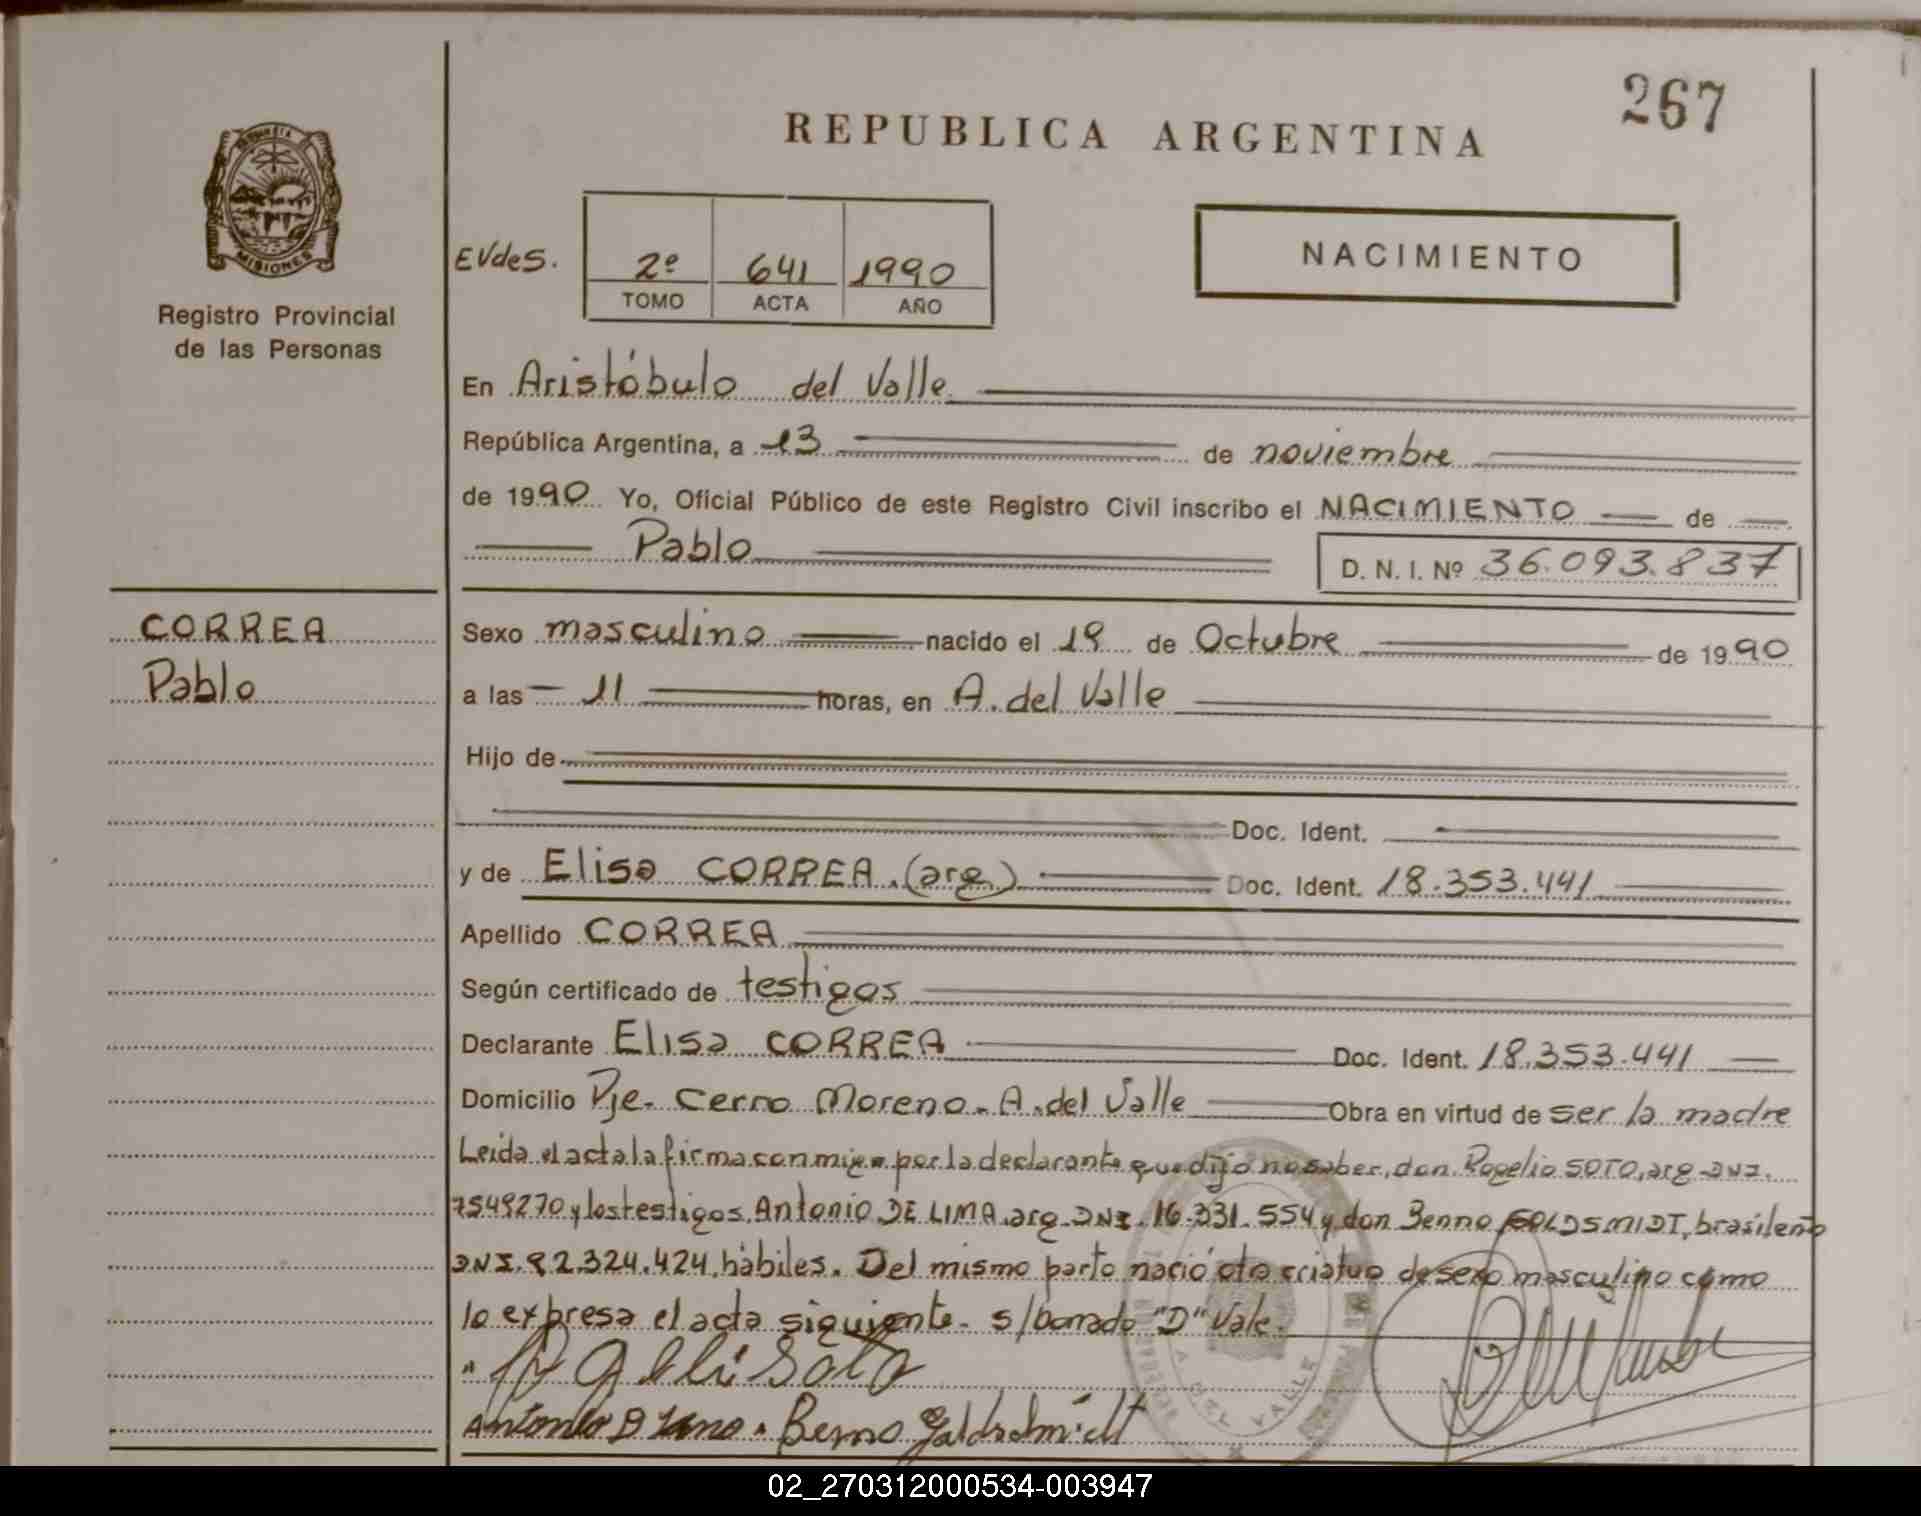 267
REPUBLICA ARGENTINA
MISIONES
Registro Provincial
de las Personas
EVdes.
2º 641 1990
TOMO ACTA AÑO
NACIMIENTO
En Aristóbulo del Valle
República Argentina, a 13 de noviembre
de 1990 Yo, Oficial Público de este Registro Civil inscribo el NACIMIENTO de
Pablo
D. N. I. Nº 36.093.837
CORREA
Pablo
Sexo masculino nacido el 19 de Octubre de 1990
a las 11 horas, en A. del Valle
Hijo de
Doc. Ident.
y de Elisa CORREA. (arg) Doc. Ident. 18.353.441
Apellido CORREA
Según certificado de testigos
Declarante Elisa CORREA Doc. Ident. 18.353.441
Domicilio Pje. Cerro Moreno. A. del Valle Obra en virtud de ser la madre
Leida el acta la firma conmigo por la declarante que dijo no saber, don Rogelio SOTO, arg. DNI.
7549270 y los testigos, Antonio DE LIMA, arg. DNI. 16.331.554 y don Benno GOLDSMIDT, brasileño
DNI. 92.324.424, hábiles. Del mismo parto nació otra criatua de sexo masculino como
lo expresa el acta siguiente. s/borrado "D" Vale.
Benno Goldschmidt
A. DEL VALLE
02_270312000534-003947